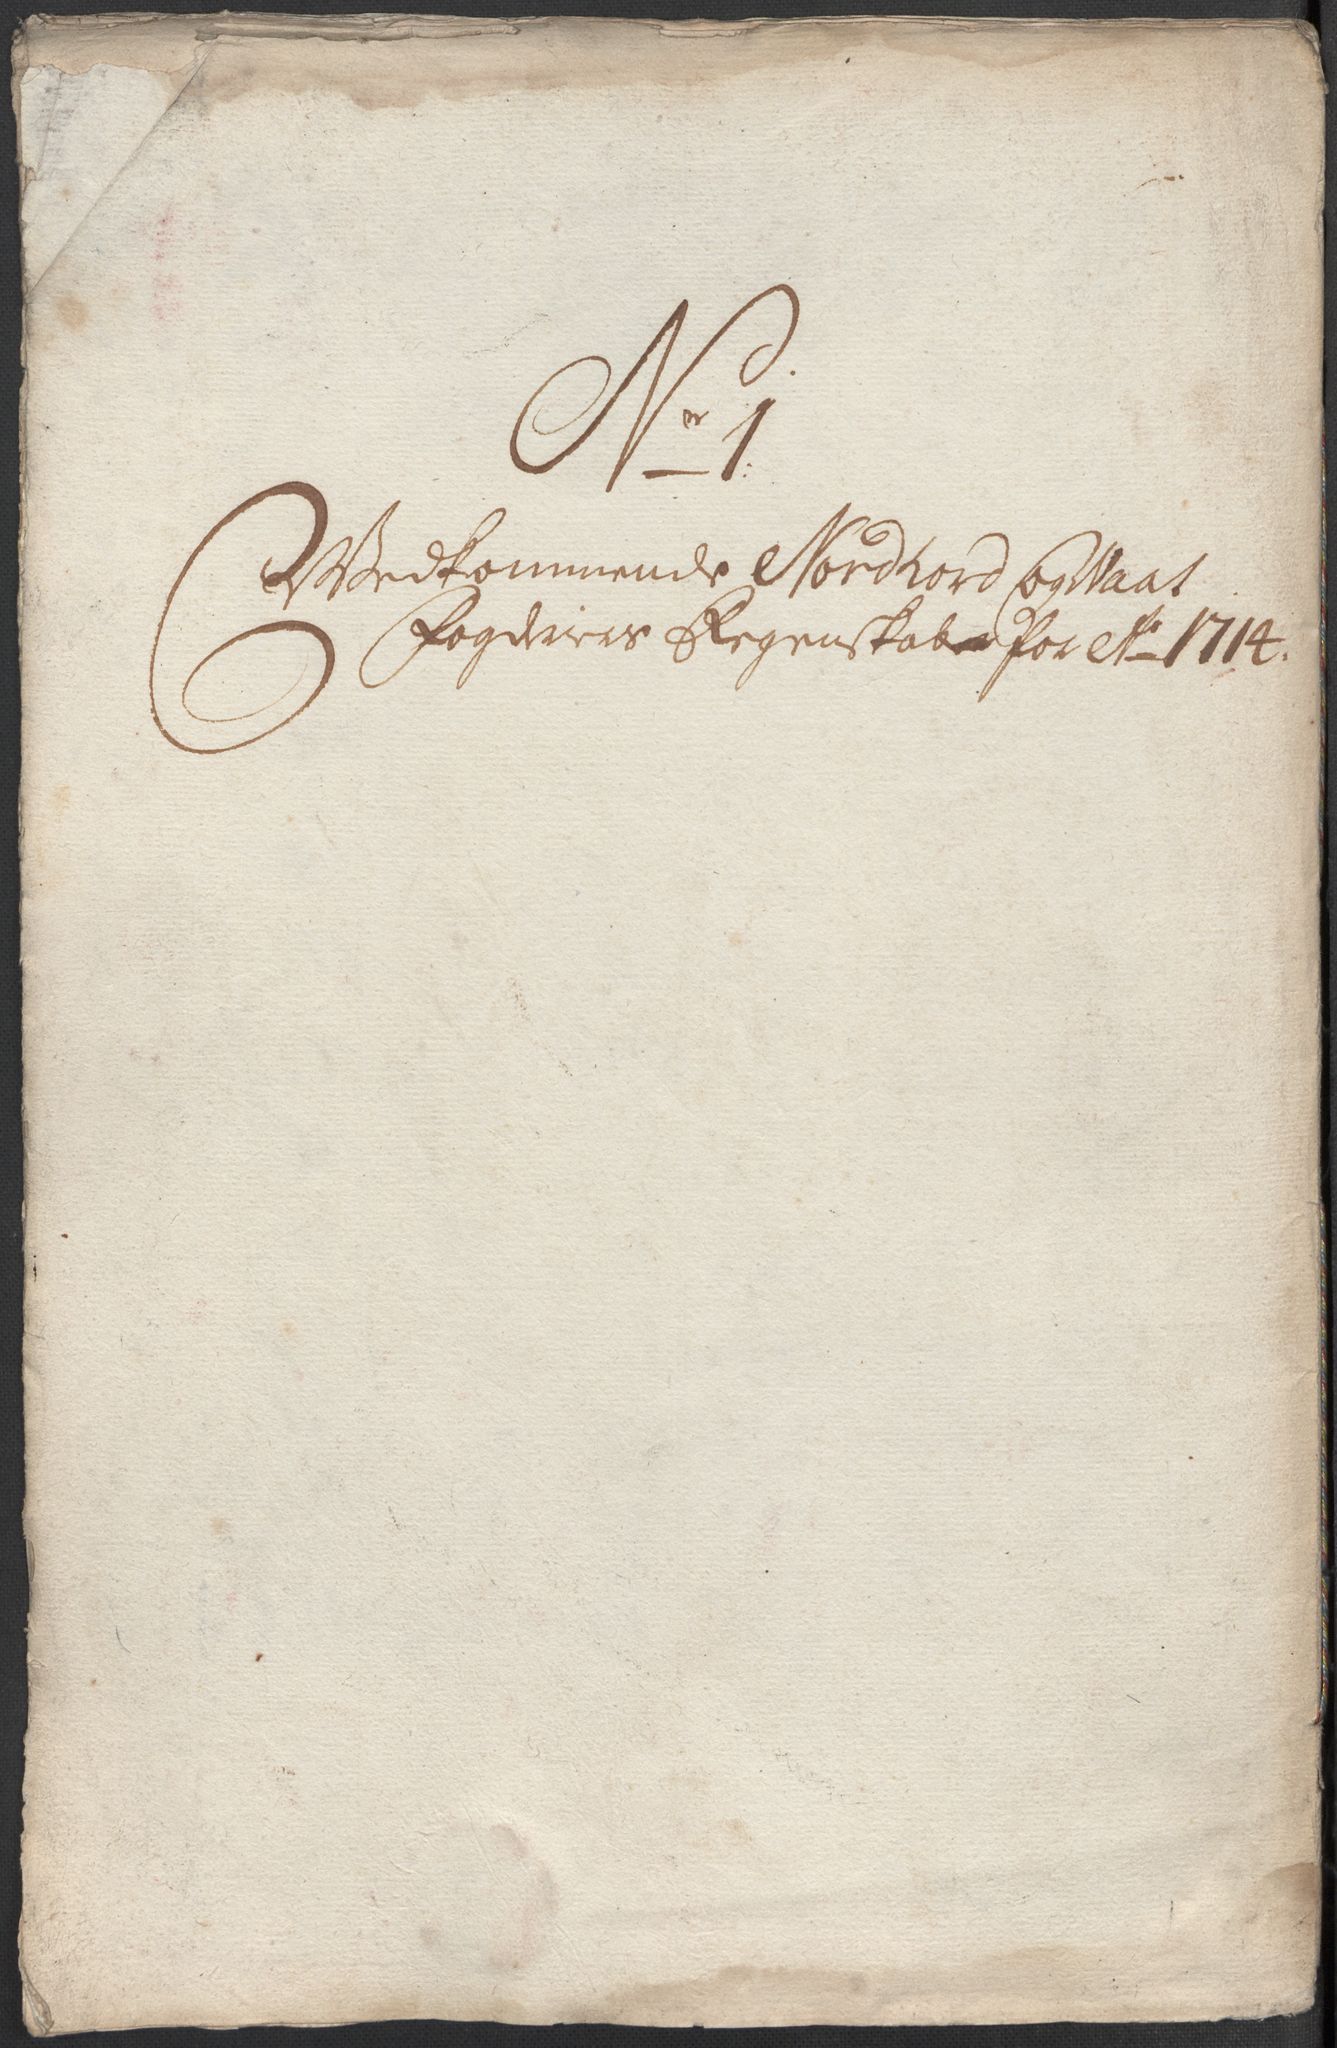 Nr 1.
Wedkommende Nordhord og Waas
Fogderies Regenskaber for Ao 1714.